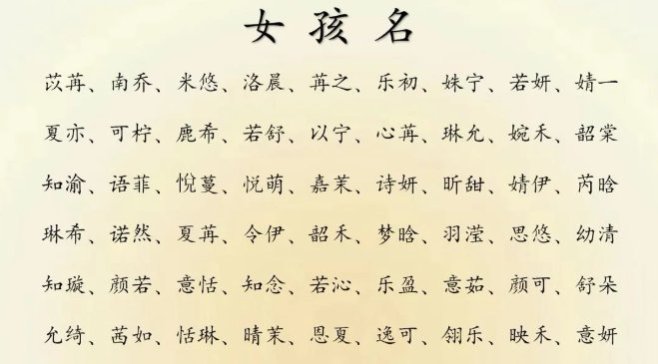 女孩名
苡苒、南乔、米悠、洛晨、苒之、乐初、姝宁、若妍、婧一
夏亦、可柠、鹿希、若舒、以宁、心苒、琳允、婉禾、韶棠
知渝、语菲、悦蔓、悦萌、嘉茉、诗妍、昕甜、婧伊、芮晗
琳希、诺然、夏苒、令伊、韶禾、梦晗、羽滢、思悠、幼清
知璇、颜若、意恬、知念、若沁、乐盈、意茹、颜可、舒朵
允绮、茜如、恬琳、晴茉、恩夏、逸可、翎乐、映禾、意妍